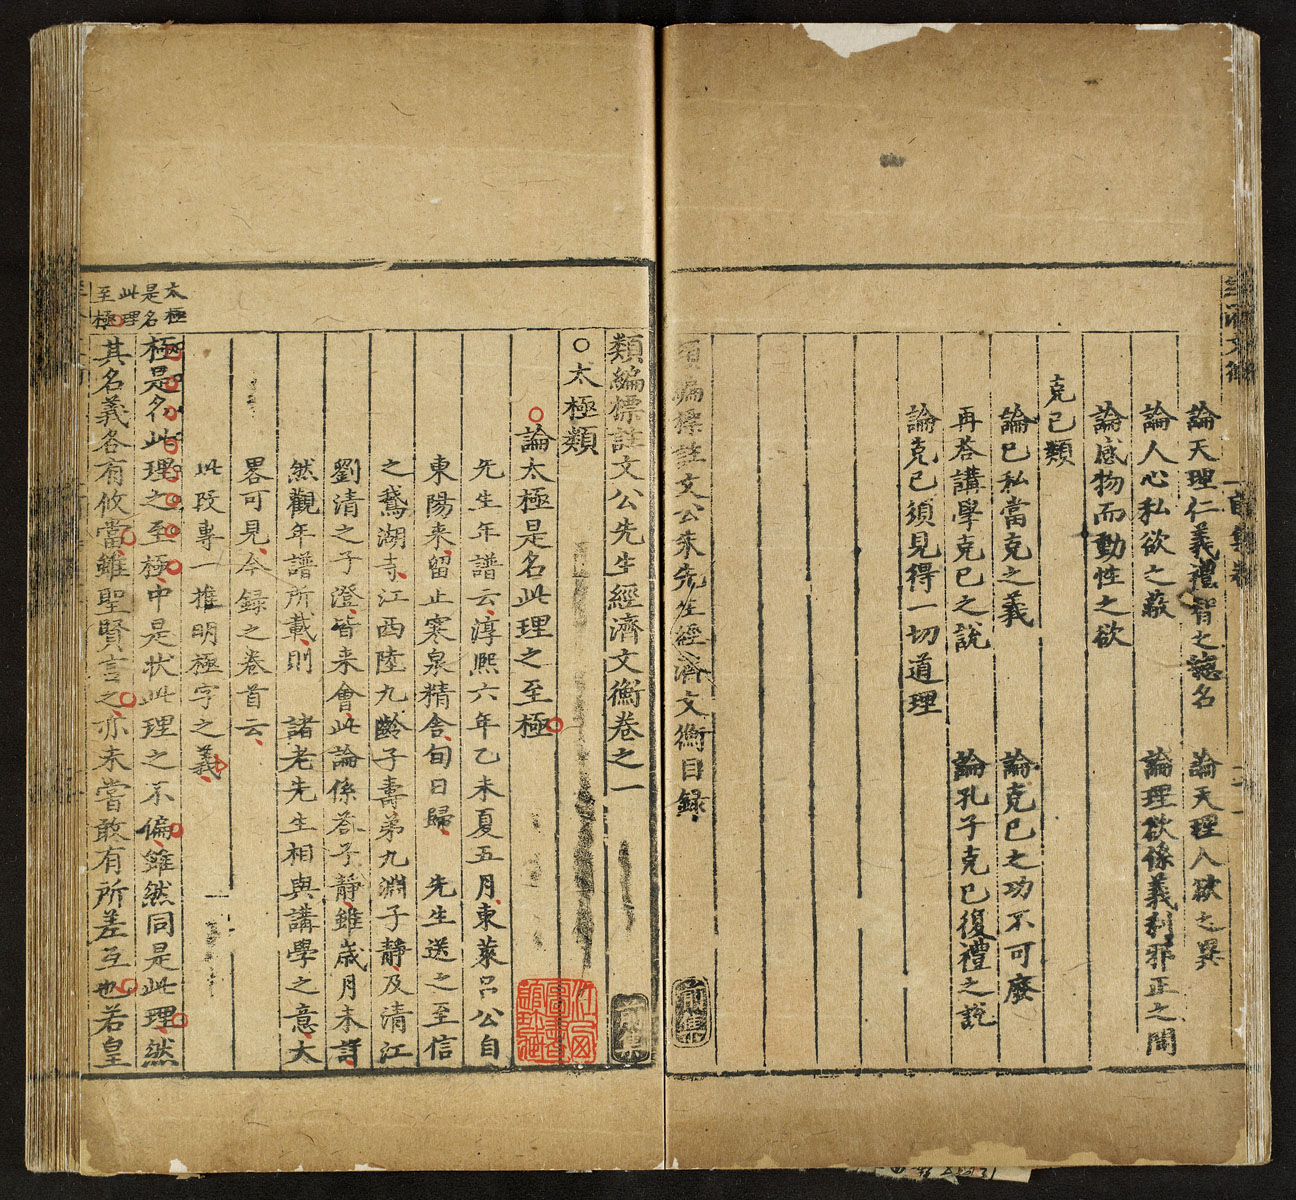 論天理仁義禮智之總名　論天理人欲之異
論人心私欲之蔽　論理欲係義利邪正之間
論感物而動性之欲
克已類
論已私當克之義　論克已之功不可廢
再荅講學克已之說　論孔子克已復禮之說
論克已須見得一切道理
類編標註文公朱先生經濟文衡目録
前集
類編標註文公先生經濟文衡卷之一
前集
○太極類
論太極是名此理之至極
先生年譜云淳熙六年乙未夏五月東萊呂公自
東陽来留止寒泉精舍旬日歸　先生送之至信
之鵝湖寺江西陸九齡子壽弟九淵子靜及清江
劉清之子澄皆来會此論係荅子靜雖嵗月未詳
然觀年譜所載則　諸老先生相與講學之意大
畧可見今録之卷首云
此段專一推明極字之義
太極
是名
此理
至極
極是名此理之至極中是狀此理之不偏雖然同是此理然
其名義各有攸當雖聖賢言之亦未嘗敢有所差互也若皇